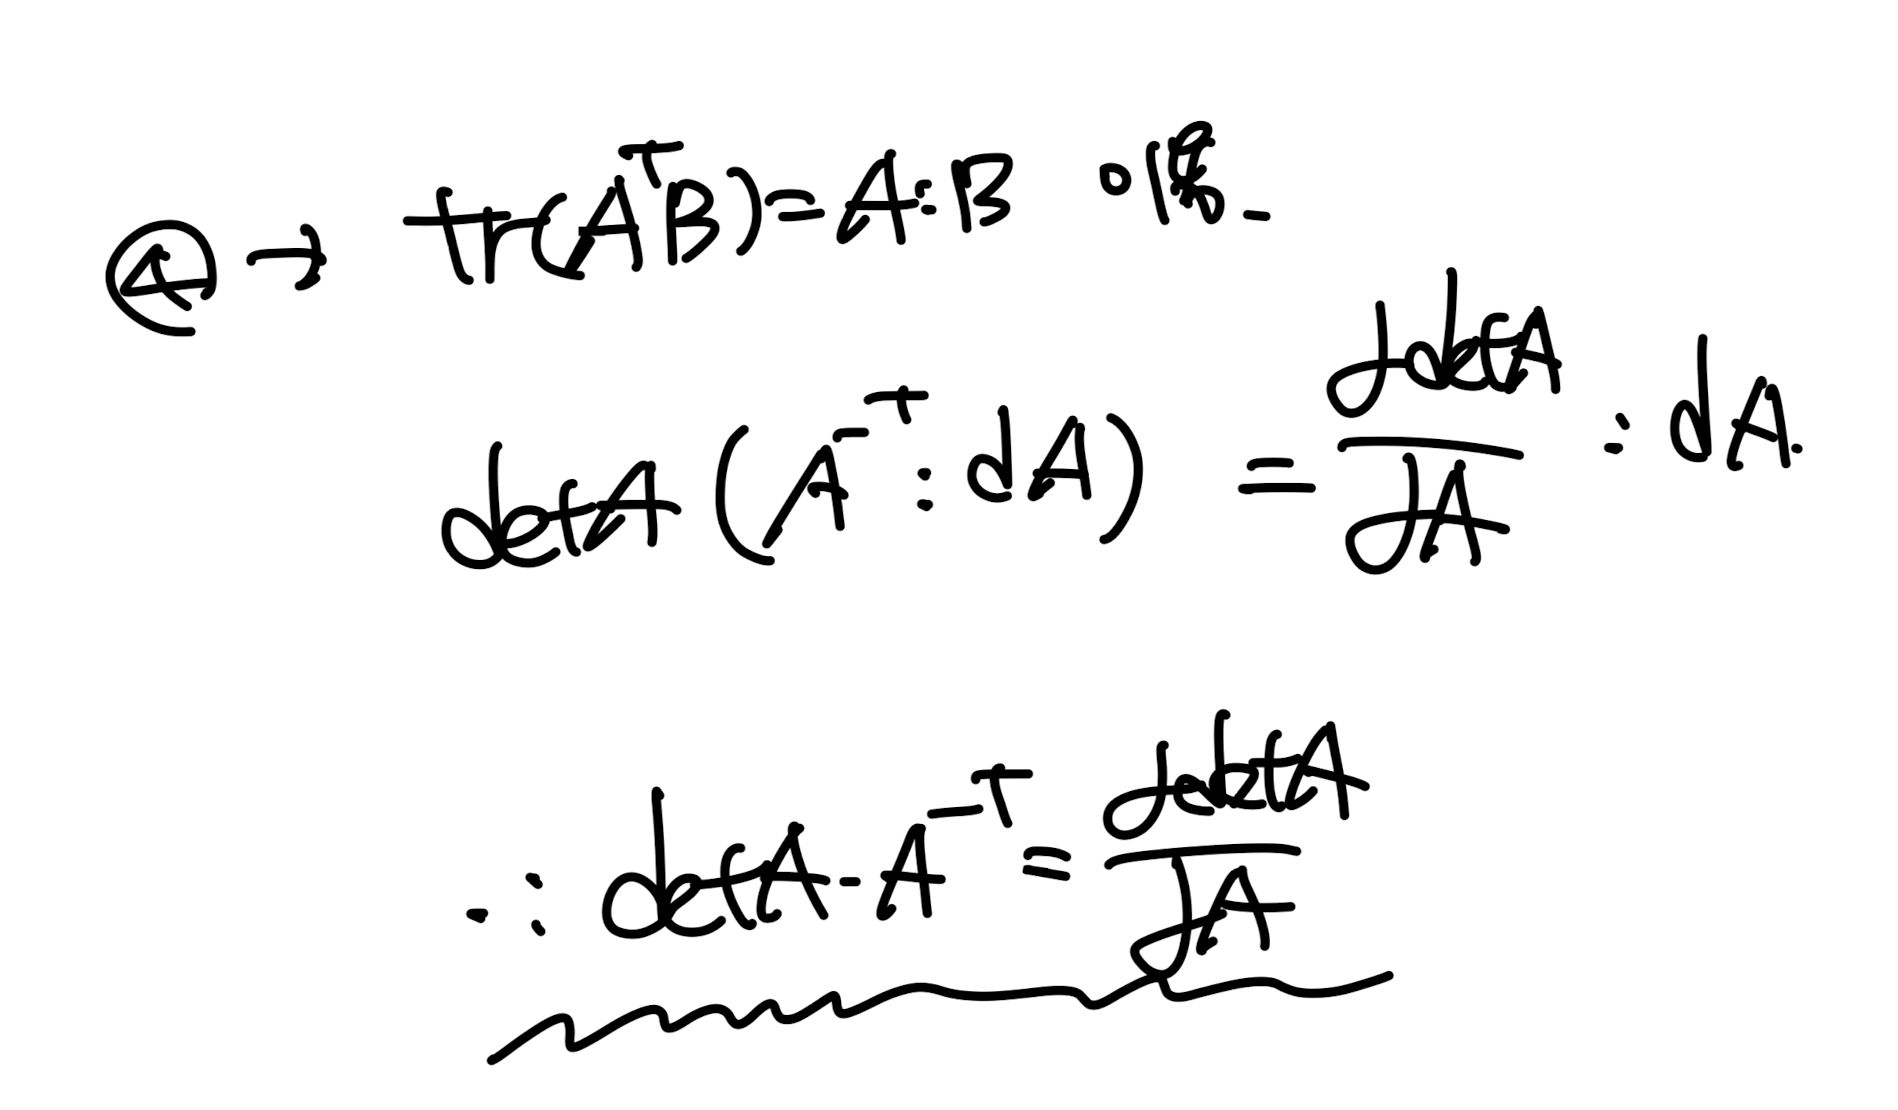 ④ → tr(AᵀB) = A:B 이용.
detA (A⁻ᵀ : dA) = ∂detA/∂A : dA.
∴ detA·A⁻ᵀ = ∂detA/∂A